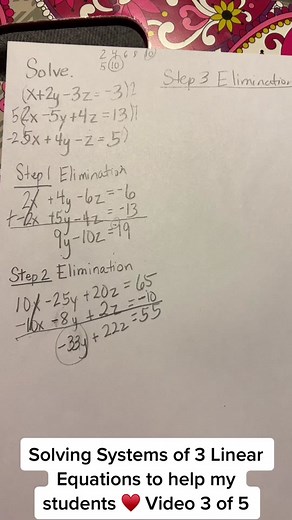 2 4 6 8 10
5 10
Solve.
(x+2y-3z=-3)2
5(2x-5y+4z=13)1
-2(5x+4y-z=5)
Step 1 Elimination
2x+4y-6z=-6
+-2x+5y-4z=-13
9y-10z=-19
Step 2 Elimination
10x-25y+20z=65
-10x-8y+2z=-10
-33y+22z=55
Step 3 Elimination
Solving Systems of 3 Linear
Equations to help my
students ♥️ Video 3 of 5